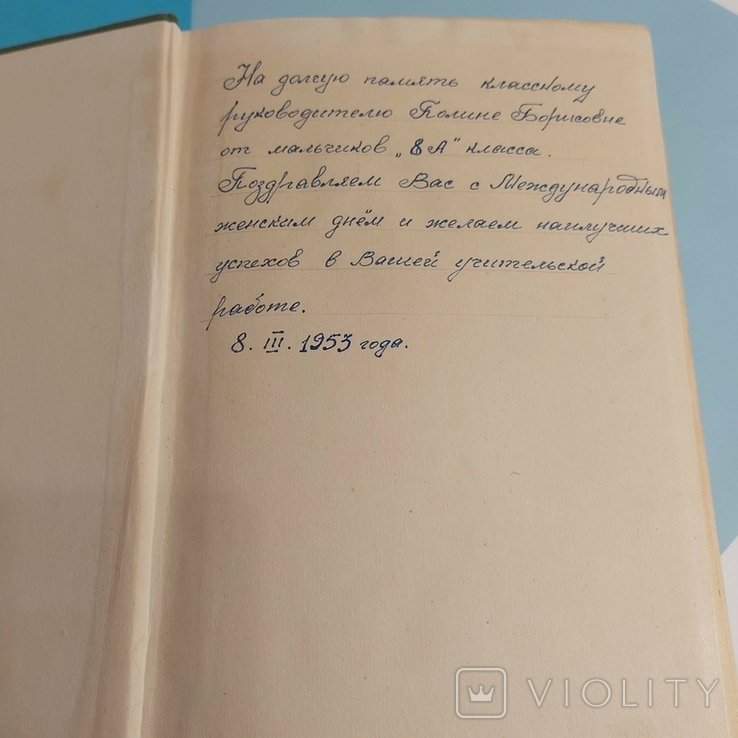 На долгую память классному
руководителю Полине Борисовне
от мальчиков „8А" класса.
Поздравляем Вас с Международным
женским днём и желаем наилучших
успехов в Вашей учительской
работе.
8. III. 1953 года.
VIOLITY